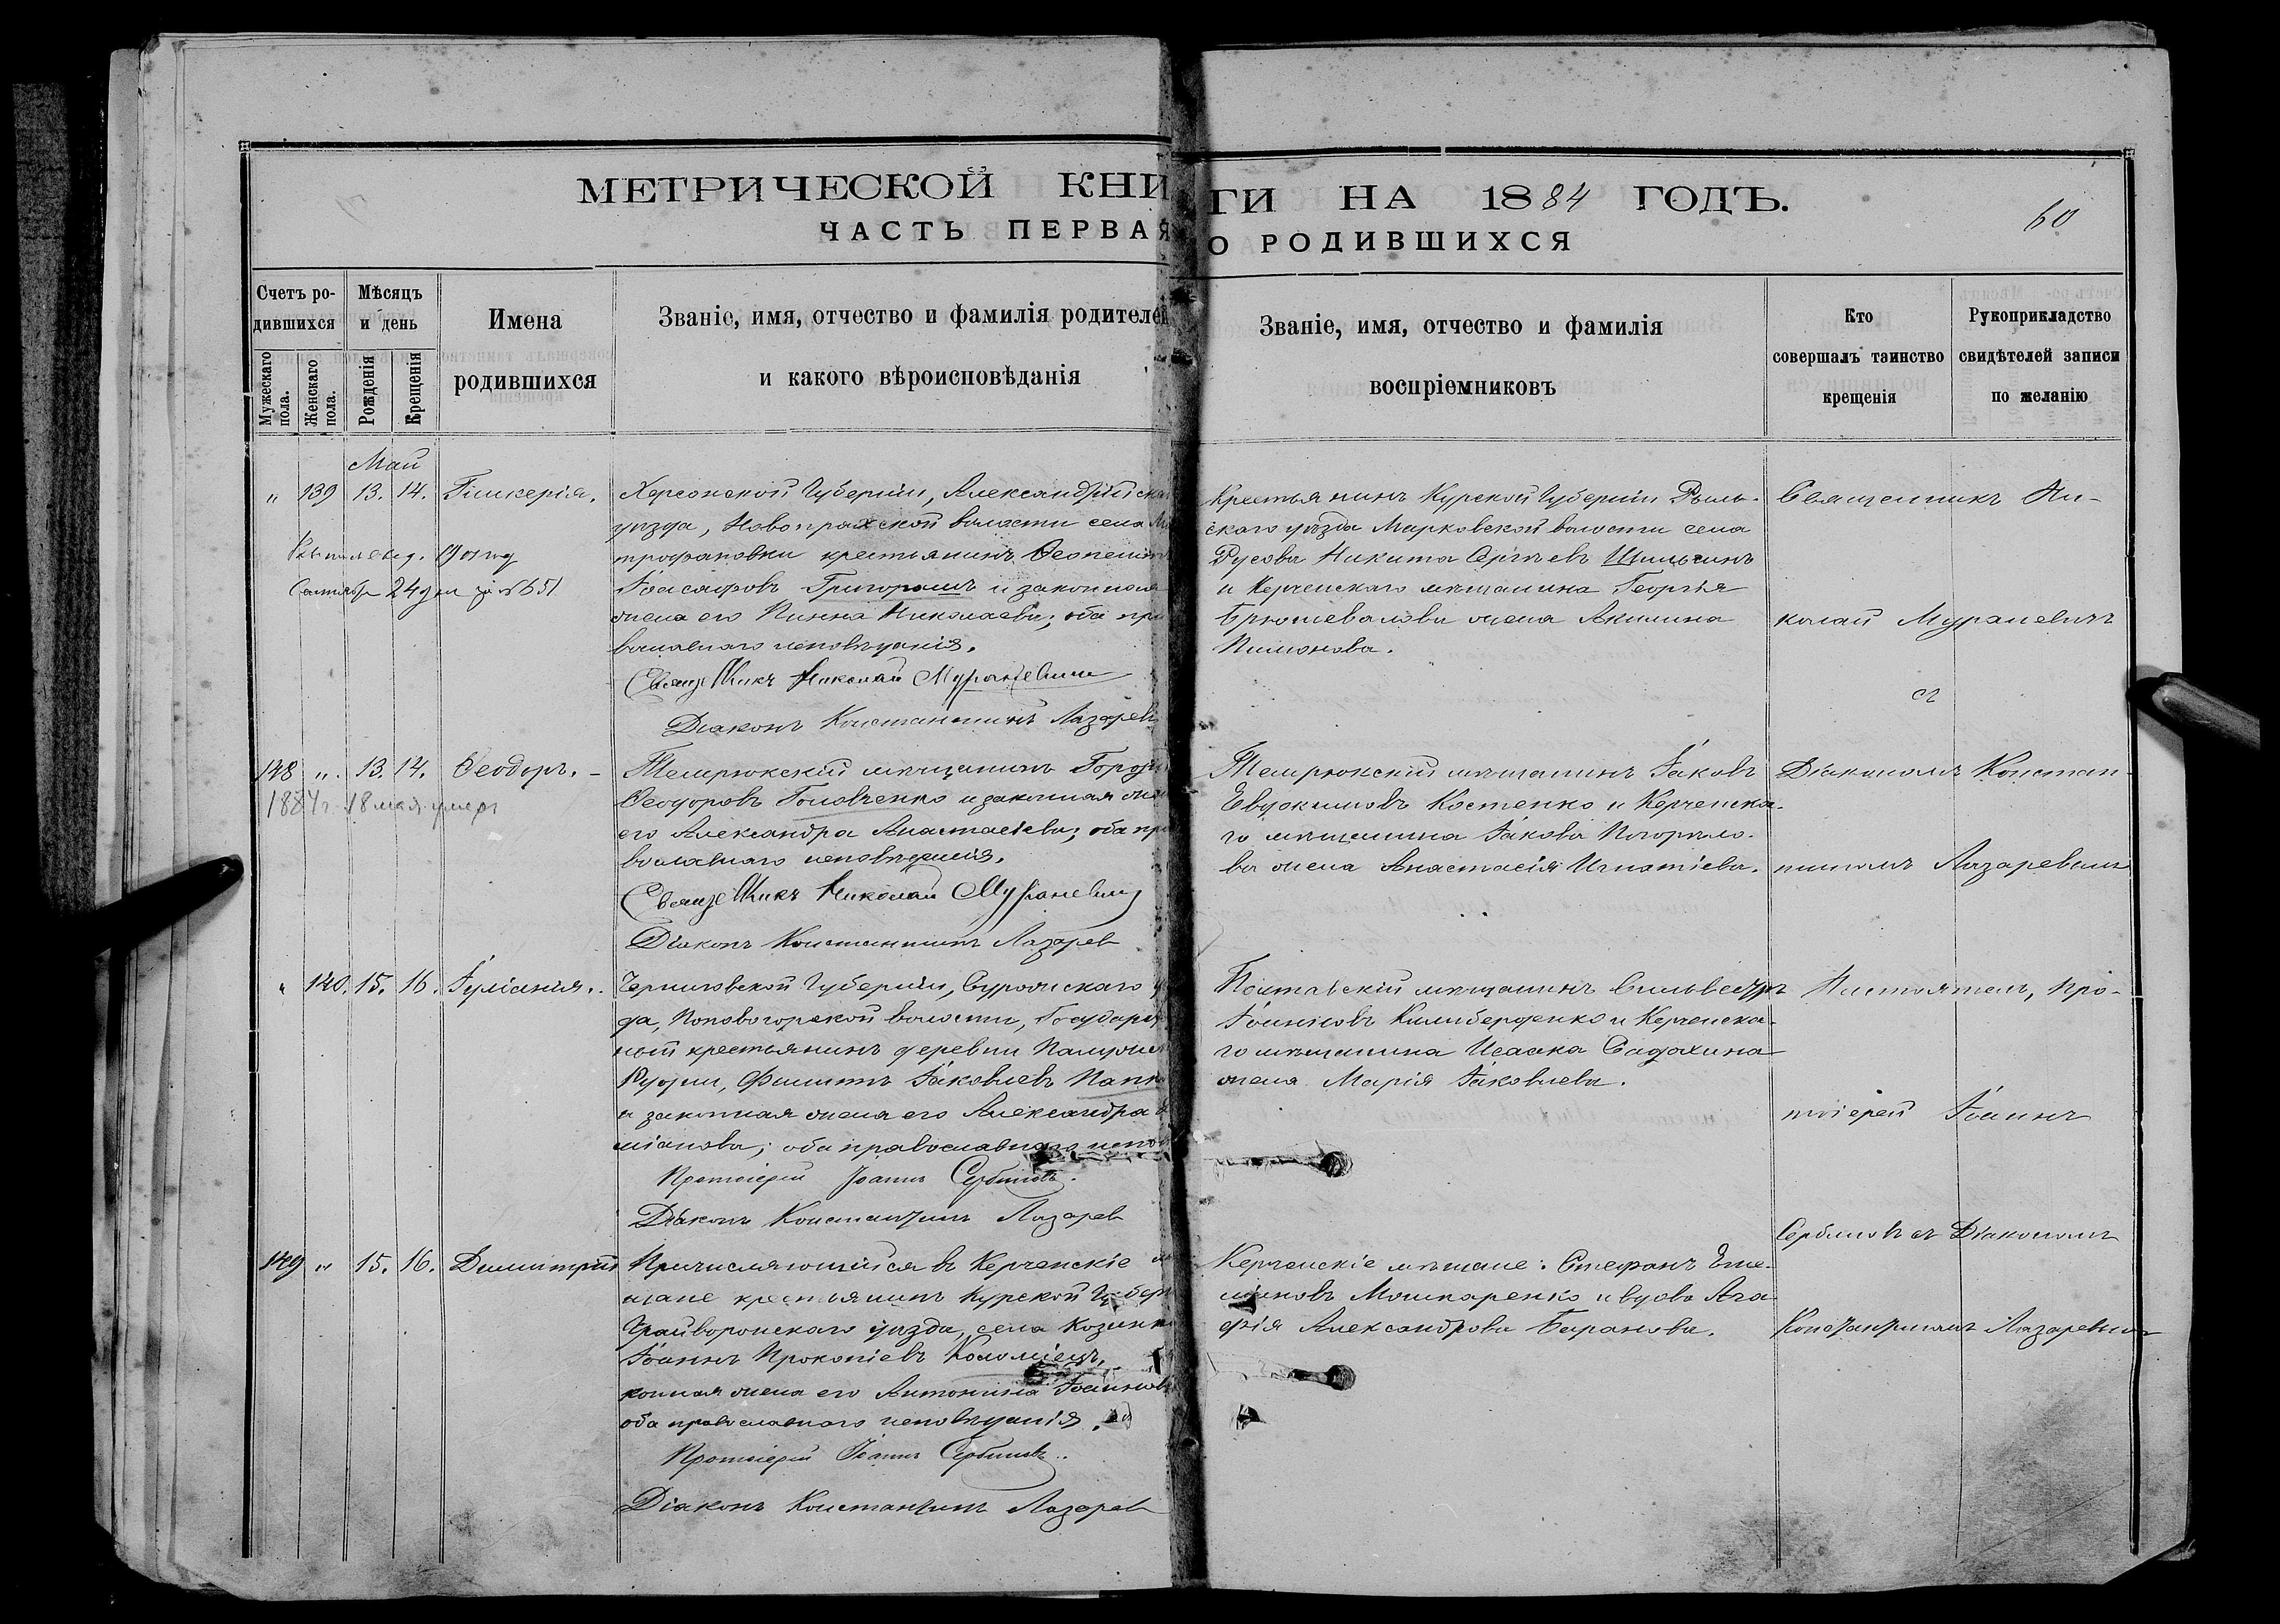 МЕТРИЧЕСКОЙ КНИГИ НА 1884 ГОДЪ.
ЧАСТЬ ПЕРВАЯ О РОДИВШИХСЯ
60
Счетъ родившихся
Мужескаго пола.
Женскаго пола.
Мѣсяцъ и день
Рожденія
Крещенія
Имена
родившихся
Званіе, имя, отчество и фамилія родителей
и какого вѣроисповѣданія
Званіе, имя, отчество и фамилія
воспріемниковъ
Кто
совершалъ таинство
крещенія
Рукоприкладство
свидѣтелей записи
по желанію
Май
" 139 13. 14. Гликерія.
Херсонской Губерніи, Александрійска
уѣзда, Новопражской волости села М
трофановки крестьянинъ
Іоасафовъ Григорашъ и законная
жена его Пинна Николаева; оба пра
вославнаго исповѣданія.
Священникъ Николай Мураневичъ
Діаконъ Константинъ Лазаревъ
Крестьянинъ Курской Губерніи Рыль-
скаго уѣзда Марковской волости села
Русова Никита Сергѣевъ
и Керченскаго мѣщанина Георгія
жена Акилина
Пимонова.
Священникъ Ни-
колай Мураневичъ
съ
Діакономъ Констан-
тиномъ Лазаревымъ
148 ". 13. 14. Ѳеодоръ. -
1884 г. 18 мая умеръ
Темрюкскій мѣщанинъ
Ѳеодоровъ Головченко и законная жена
его Александра Анастасіева; оба пра
вославнаго исповѣданія.
Священникъ Николай Мураневичъ
Діаконъ Константинъ Лазарев
Темрюкскій мѣщанинъ Іаковъ
Евдокимовъ Костенко и Керченска-
го мѣщанина Іакова Погорѣло-
ва жена Анастасія Игнатіева.
" 140. 15. 16. Іуліанія.
Черниговской Губерніи, Суражскаго у
да, Поповогорской волости, Государст
ный крестьянинъ деревни
Рудни, Филиппъ Іаковлевъ
и законная жена его Александра
міанова; оба православнаго испов
Протоіерей Іоаннъ Сербиновъ.
Діаконъ Константинъ Лазарев
Полтавскій мѣщанинъ Сильвестръ
Іоанновъ и Керченска-
го мѣщанина Исаака Садохина
жена Марія Іаковлева.
Настоятель, Про-
тоіерей Іоаннъ
Сербиновъ съ Діакономъ
Константиномъ Лазаревымъ
149 " 15. 16. Димитрій
Причисляющійся въ Керченскіе м
щане крестьянинъ Курской Губерн
Грайворонскаго уѣзда, села Козинк
Іоаннъ Прокопіевъ Коломіецъ,
конная жена его Антонина Іоаннов
оба православнаго исповѣданія.
Протоіерей Іоаннъ Сербиновъ.
Діаконъ Константинъ Лазарев
Керченскіе мѣщане: Стефанъ Еме-
ліановъ Мошкаренко и вдова Ага-
фія Александрова Баранова.